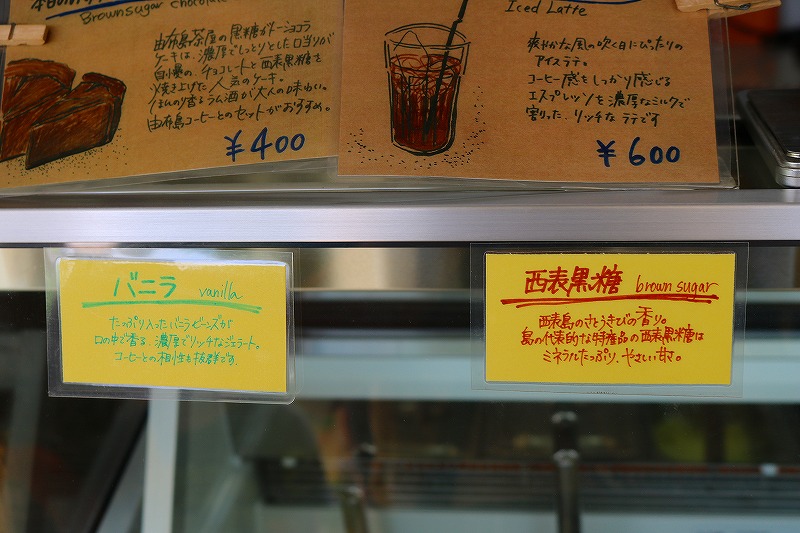 Brownsugar chocolate
由布島茶屋の黒糖ガトーショコラ
ケーキは、濃厚でしっとりとした口当りが
自慢の、チョコレートと西表黒糖を
焼き上げた人気のケーキ。
ほんのり香るラム酒が大人の味わい。
由布島コーヒーとのセットがおすすめ。
¥400
Iced Latte
爽やかな風の吹く日にぴったりの
アイスラテ。
コーヒー感をしっかり感じる
エスプレッソを濃厚なミルクで
割った、リッチなラテです
¥600
バニラ vanilla
たっぷり入ったバニラビーンズが
口の中で香る、濃厚でリッチなジェラート。
コーヒーとの相性も抜群です。
西表黒糖 brown sugar
西表島のさとうきびの香り。
島の代表的な特産品の西表黒糖は
ミネラルたっぷり、やさしい甘さ。